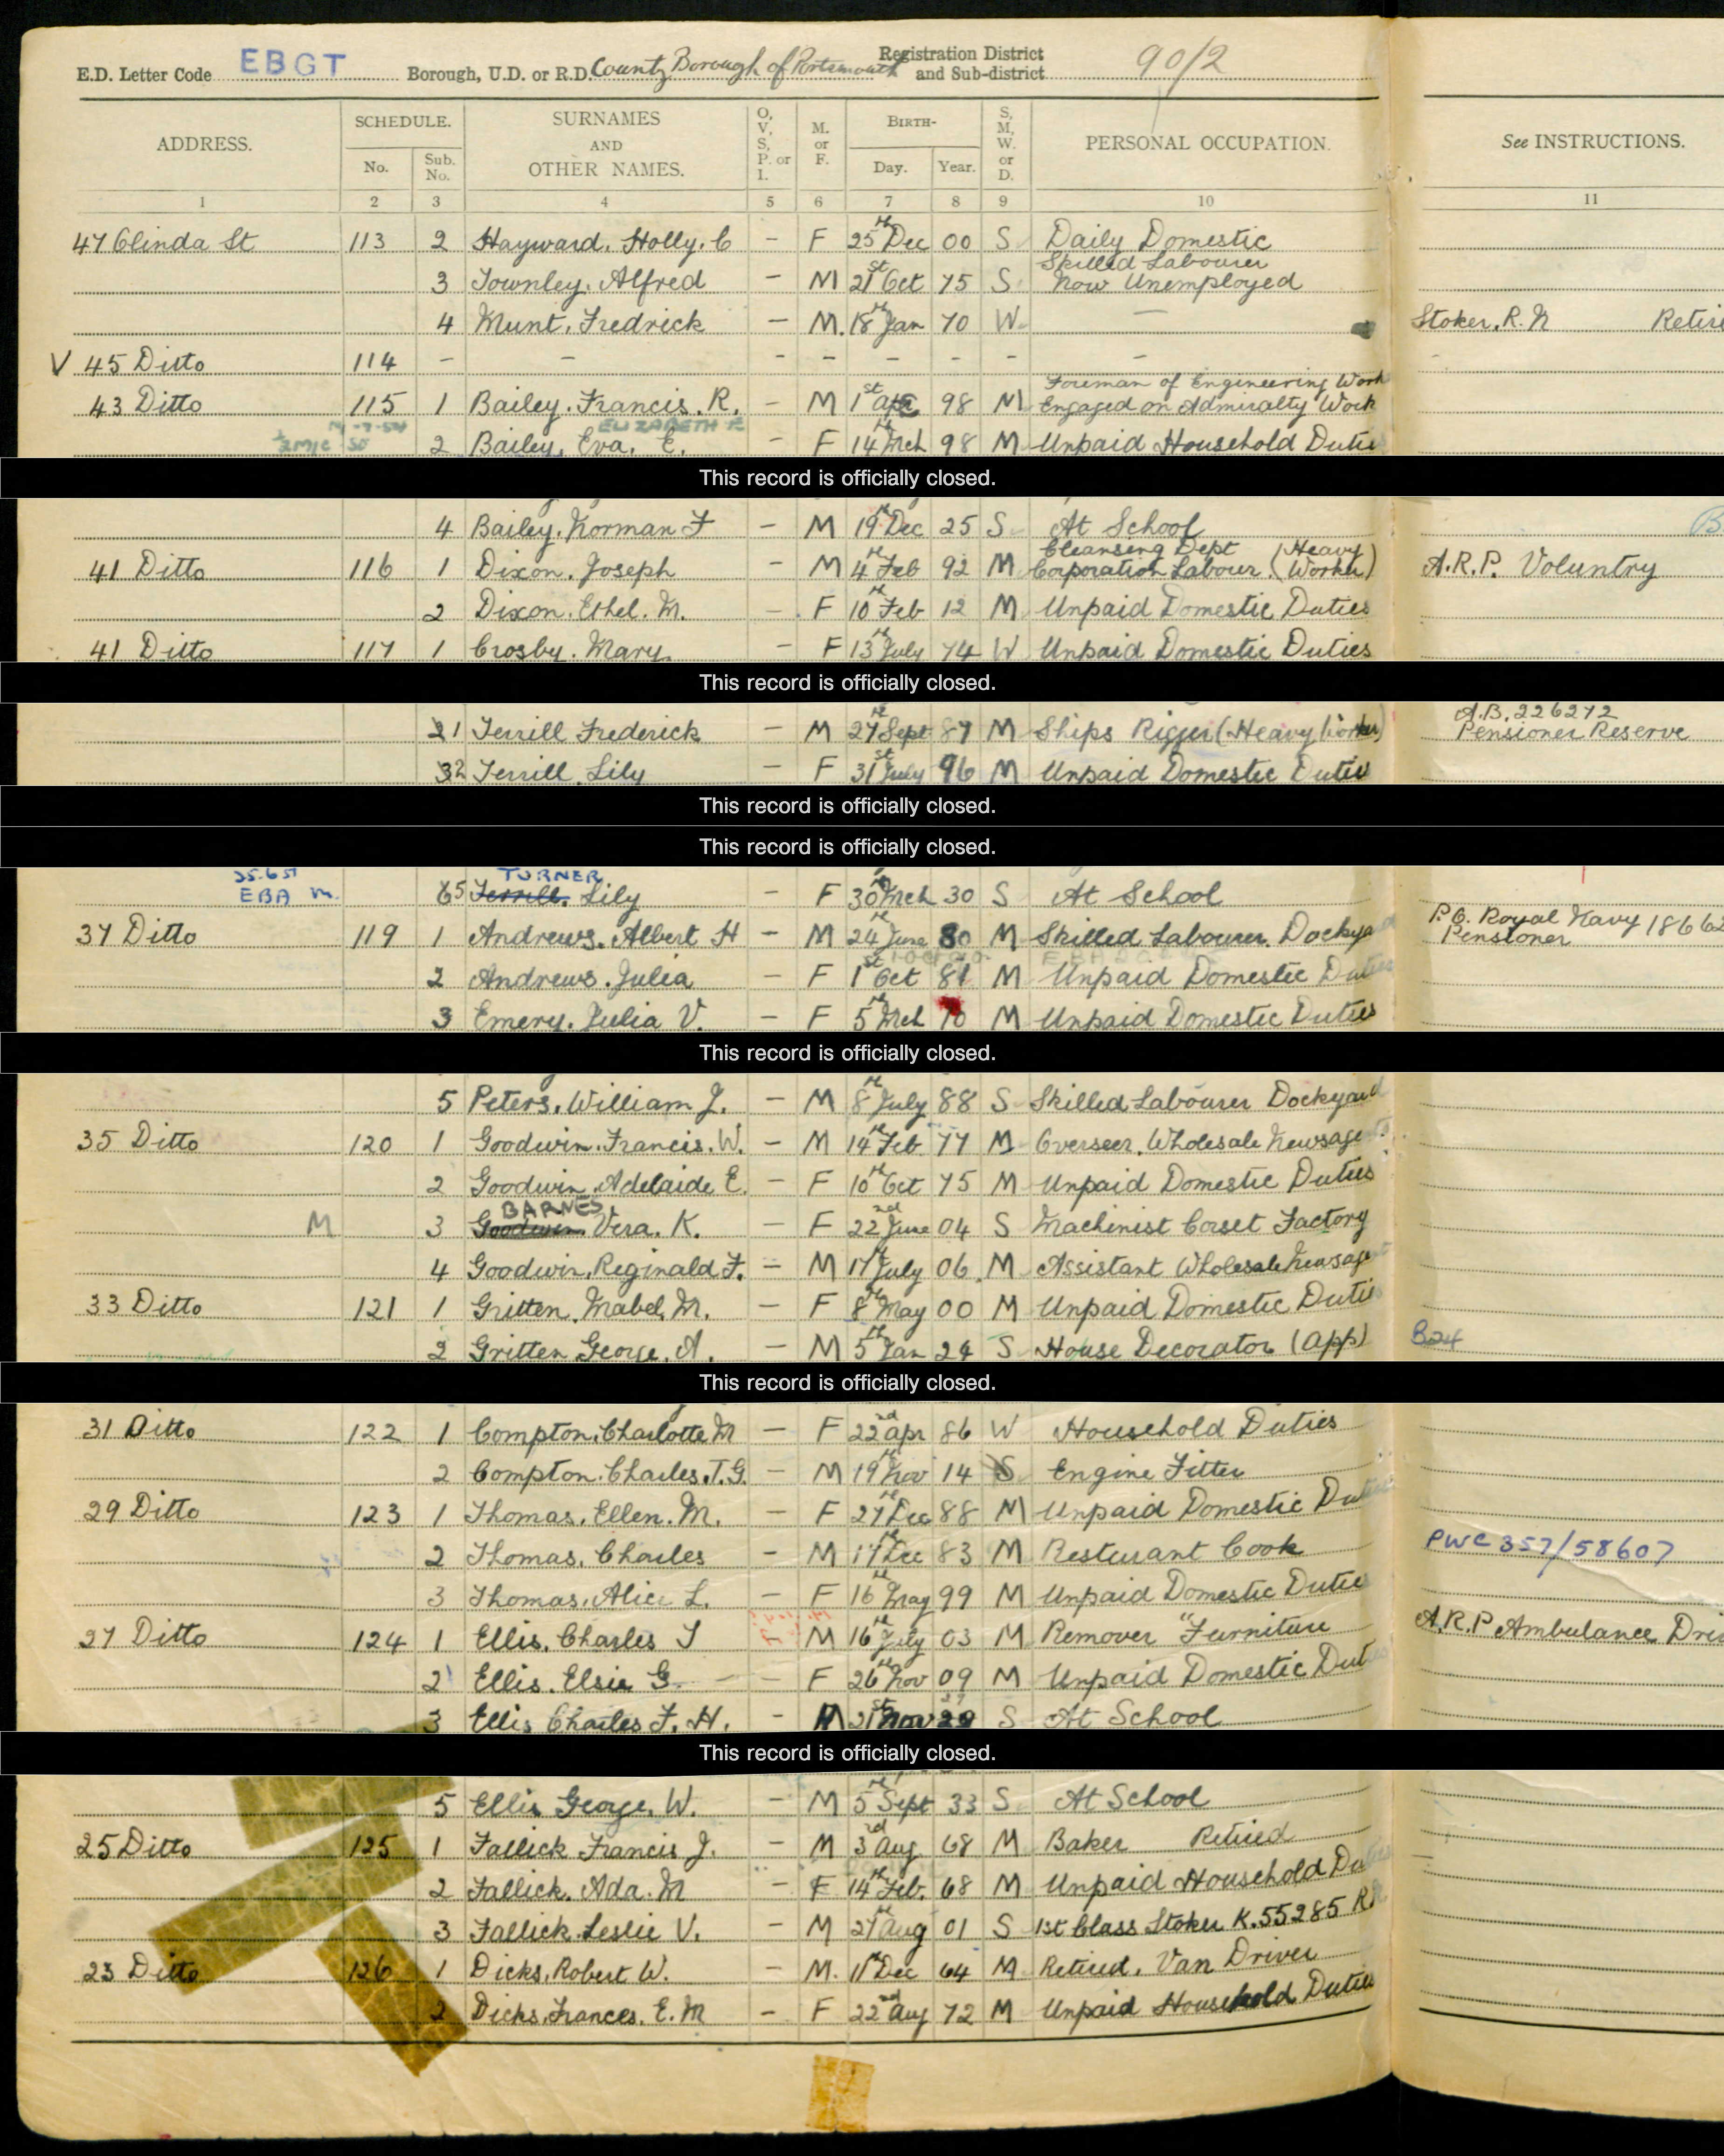 E.D. Letter Code EBGT Borough, U.D. or R.D. County Borough of Portsmouth Registration District and Sub-district 90/2
ADDRESS. SCHEDULE. No. Sub. No. SURNAMES AND OTHER NAMES. O, V, S, P. or I. M. or F. BIRTH- Day. Year. S, M, W. or D. PERSONAL OCCUPATION. See INSTRUCTIONS.
1 2 3 4 5 6 7 8 9 10 11
47 Olinda St 113 2 Hayward. Holly. C – F 25th Dec 00 S Daily Domestic
3 Townley. Alfred – M 21st Oct 75 S Skilled Labourer Now Unemployed
4 Munt. Fredrick – M. 18th Jan 70 W – Stoker. R.N Retire
V 45 Ditto 114 – – – – – – – – –
43 Ditto 115 1 Bailey. Francis. R. – M 1st Apr 98 M Foreman of Engineering Work Engaged on Admiralty Work
ELIZABETH E
2 Bailey, Eva. E. – F 14th Mch 98 M Unpaid Household Duties
This record is officially closed.
4 Bailey. Norman F – M 19th Dec 25 S At School
41 Ditto 116 1 Dixon. Joseph – M 4th Feb 92 M Cleansing Dept Corporation Labour. (Heavy Worker) A.R.P. Voluntry
2 Dixon. Ethel. M. – F 10th Feb 12 M Unpaid Domestic Duties
41 Ditto 117 1 Crosby. Mary – F 13th July 74 W Unpaid Domestic Duties
This record is officially closed.
1 Terrill Frederick – M 27th Sept 87 M Ships Rigger (Heavy Worker) A.B. 226272 Pensioner Reserve
2 Terrill. Lily – F 31st July 96 M Unpaid Domestic Duties
This record is officially closed.
This record is officially closed.
25.6.51 TURNER
EBA M. 5 Terrill. Lily – F 30th Mch 30 S At School
37 Ditto 119 1 Andrews. Albert H – M 24th June 80 M Skilled Labourer. Dockya P.O. Royal Navy 18662 Pensioner
2 Andrews. Julia – F 1st Oct 81 M Unpaid Domestic Duties
3 Emery. Julia V. – F 5th Mch 10 M Unpaid Domestic Duties
This record is officially closed.
5 Peters. William J. – M 8th July 88 S Skilled Labourer Dockyard
35 Ditto 120 1 Goodwin. Francis. W. – M 14th Feb 77 M Overseer. Wholesale Newsage
2 Goodwin. Adelaide E. – F 10th Oct 75 M Unpaid Domestic Duties
BARNES
M 3 Goodwin. Vera. K. – F 22nd June 04 S Machinist Corset Factory
4 Goodwin. Reginald F. – M 17th July 06 M Assistant Wholesale Newsagent
33 Ditto 121 1 Gritten. Mabel. M. – F 8th May 00 M Unpaid Domestic Duties
2 Gritten George. A. – M 5th Jan 24 S House Decorator (App) B24
This record is officially closed.
31 Ditto 122 1 Compton. Charlotte M – F 22nd Apr 86 W Household Duties
2 Compton. Charles. T.G. – M 19th Nov 14 S Engine Fitter
29 Ditto 123 1 Thomas. Ellen. M. – F 27th Dec 88 M Unpaid Domestic Duties
2 Thomas. Charles – M 17th Dec 83 M Resturant Cook PWC 357/58607
3 Thomas. Alice L. – F 16th May 99 M Unpaid Domestic Duties
27 Ditto 124 1 Ellis. Charles T M 16th July 03 M Remover "Furniture A.R.P Ambulance Dri
2 Ellis. Elsie G. – F 26th Nov 09 M Unpaid Domestic Dut
3 Ellis Charles F. H. – M 21st Nov 29 S At School
This record is officially closed.
5 Ellis George. W. – M 5th Sept 33 S At School
25 Ditto 125 1 Fallick Francis J. – M 3rd Aug 68 M Baker Retired
2 Fallick. Ada. M – F 14th Feb. 68 M Unpaid Household Du
3 Fallick. Leslie V. – M 27th Aug 01 S 1st Class Stoker K.55285 R
23 Ditto 126 1 Dicks. Robert W. – M. 11th Dec 64 M Retired. Van Driver
2 Dicks. Frances. E. M – F 22nd Aug 72 M Unpaid Household Duties